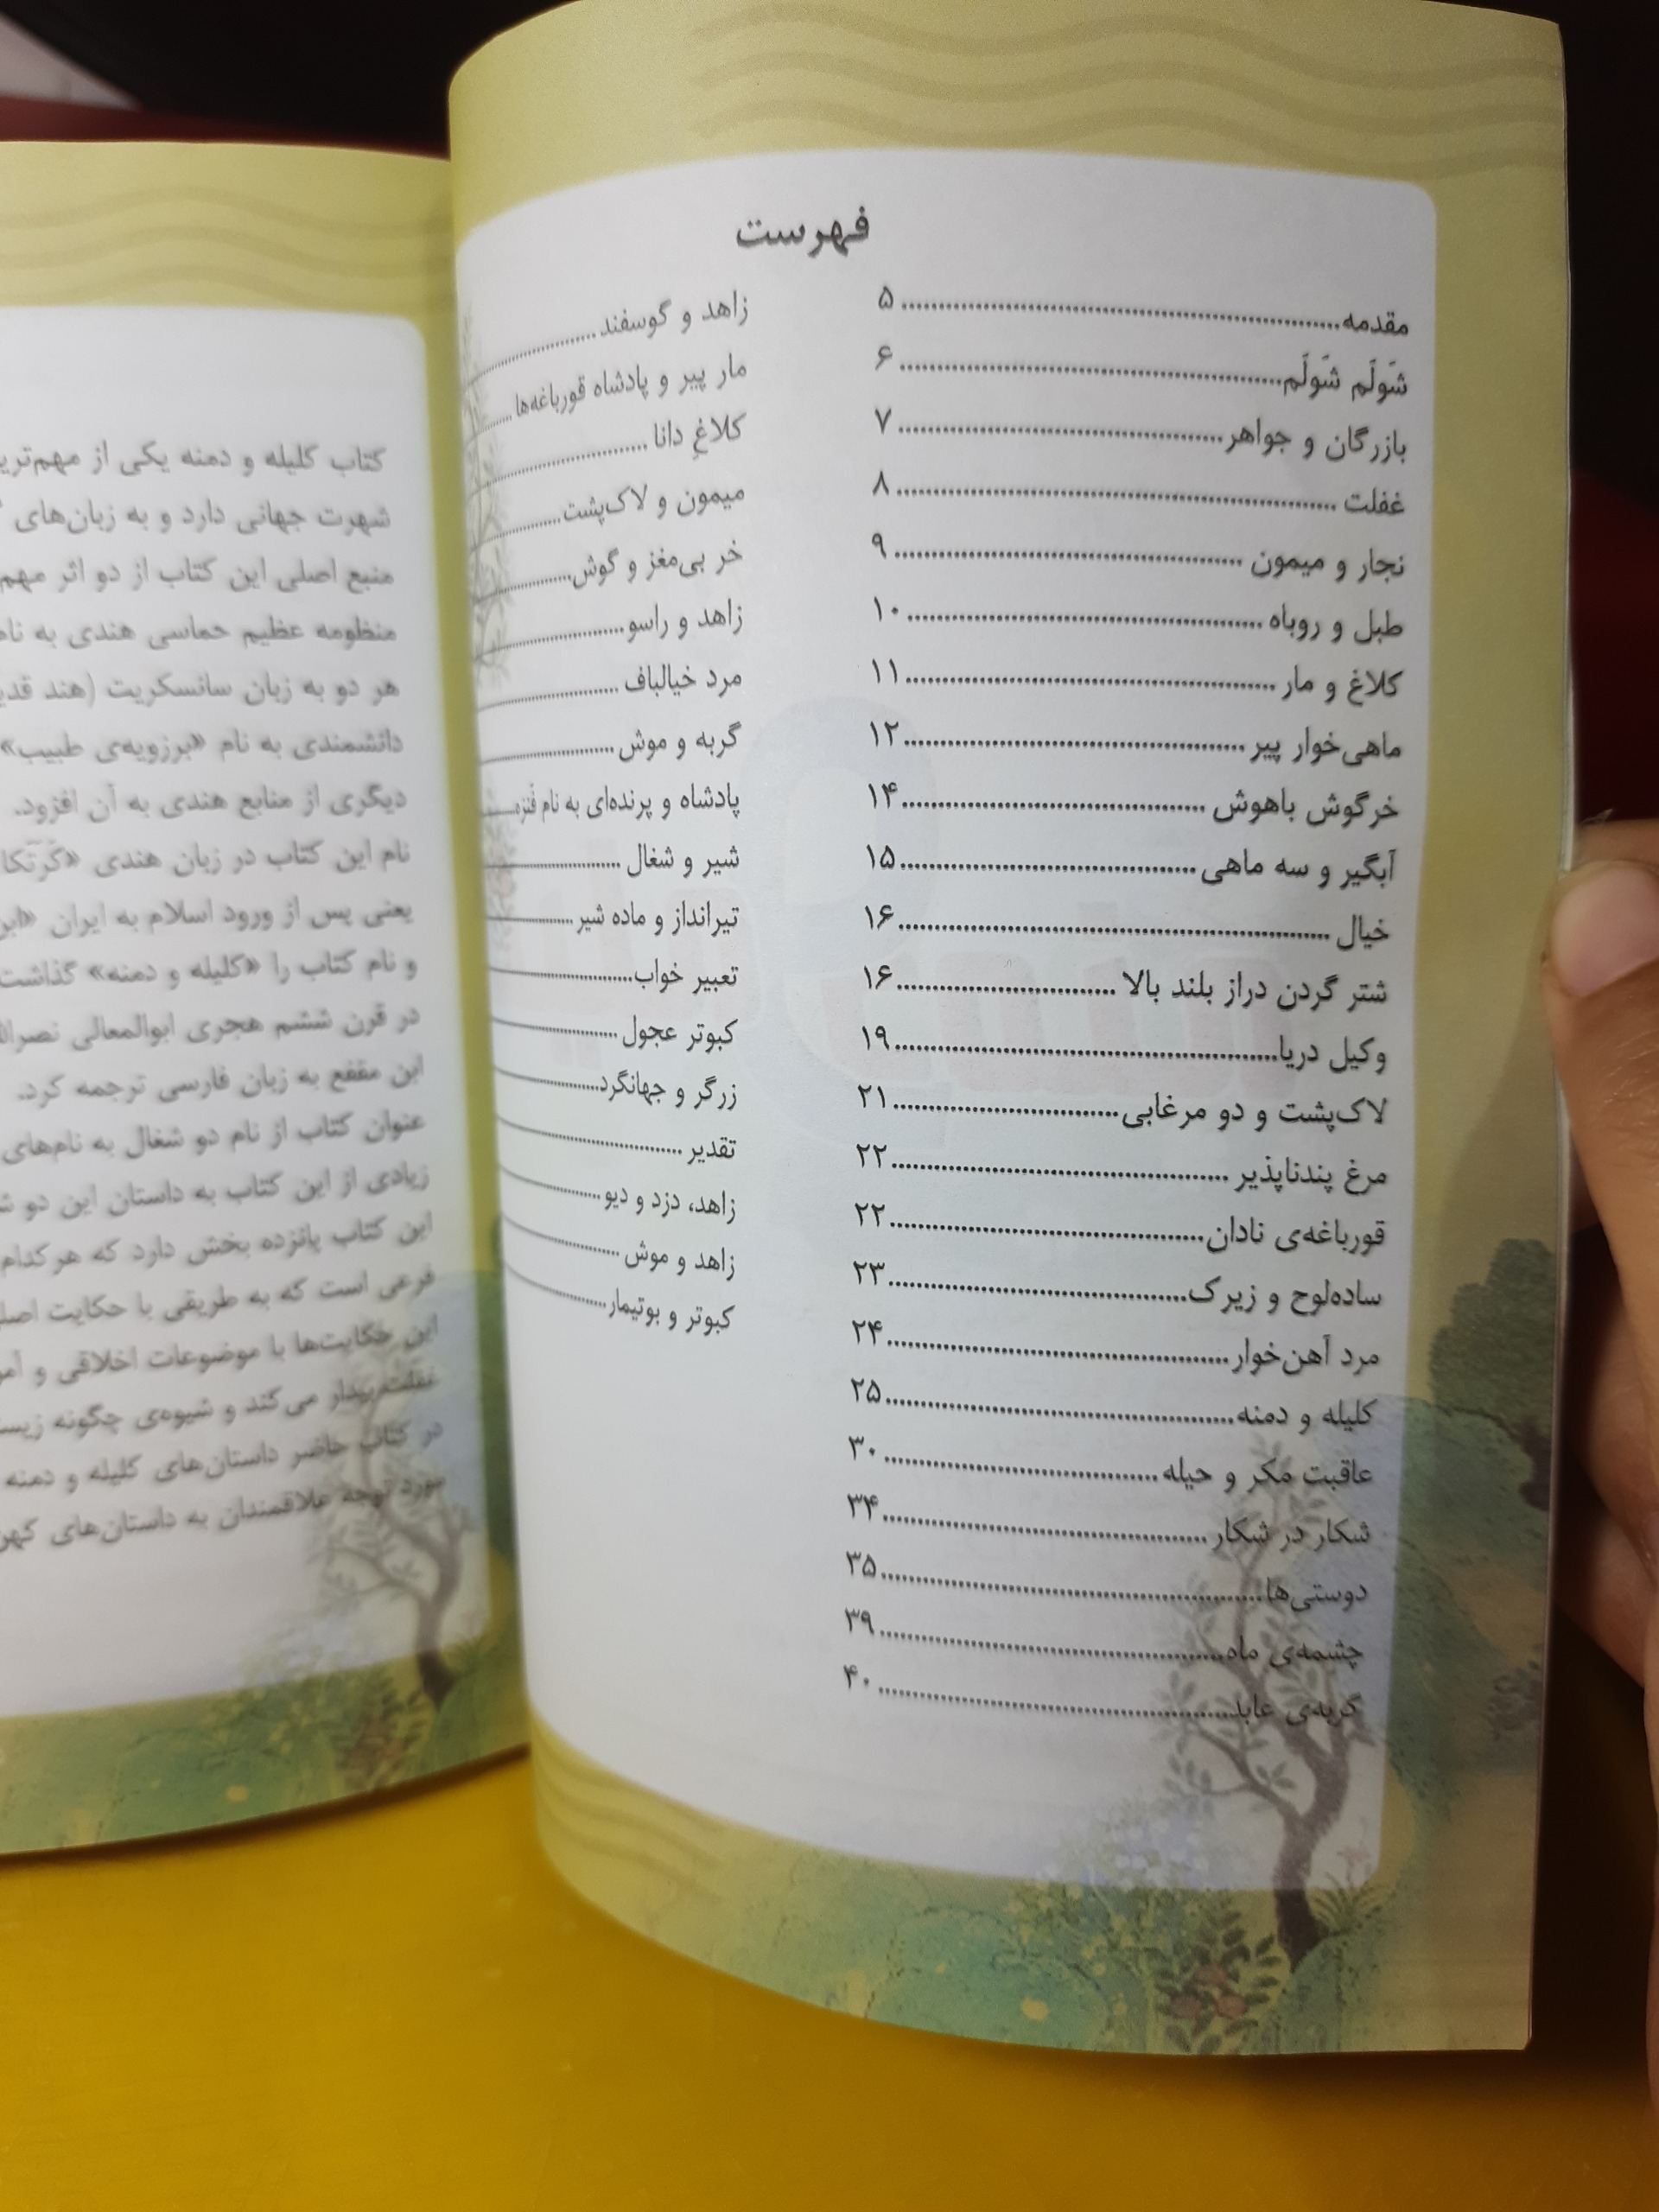 فهرست
مقدمه ۵
شَولَم شَولَم ۶
بازرگان و جواهر ۷
غفلت ۸
نجار و میمون ۹
طبل و روباه ۱۰
کلاغ و مار ۱۱
ماهی‌خوار پیر ۱۲
خرگوش باهوش ۱۴
آبگیر و سه ماهی ۱۵
خیال ۱۶
شتر گردن دراز بلند بالا ۱۶
وکیل دریا ۱۹
لاک‌پشت و دو مرغابی ۲۱
مرغ پندناپذیر ۲۲
قورباغه‌ی نادان ۲۲
ساده‌لوح و زیرک ۲۳
مرد آهن‌خوار ۲۴
کلیله و دمنه ۲۵
عاقبت مکر و حیله ۳۰
شکار در شکار ۳۴
دوستی‌ها ۳۵
چشمه‌ی ماه ۳۹
گربه‌ی عابد ۴۰
زاهد و گوسفند
مار پیر و پادشاه قورباغه‌ها
کلاغِ دانا
میمون و لاک‌پشت
خر بی‌مغز و گوش
زاهد و راسو
مرد خیالباف
گربه و موش
پادشاه و پرنده‌ای به نام فَنزه
شیر و شغال
تیرانداز و ماده شیر
تعبیر خواب
کبوتر عجول
زرگر و جهانگرد
تقدیر
زاهد، دزد و دیو
زاهد و موش
کبوتر و بوتیمار
کتاب کلیله و دمنه یکی از
شهرت جهانی دارد و به زبان‌های
منبع اصلی این کتاب از دو اثر مهم
منظومه عظیم حماسی هندی به
هر دو به زبان سانسکریت (هند
دانشمندی به نام «برزویه‌ی طبیب»
دیگری از منابع هندی به آن افزود.
نام این کتاب در زبان هندی
یعنی پس از ورود اسلام به ایران
و نام کتاب را «کلیله و دمنه»
در قرن ششم هجری ابوالمعالی
ابن مقفع به زبان فارسی ترجمه کرد.
عنوان کتاب از نام دو شغال به نام‌های
زیادی از این کتاب به داستان این دو
این کتاب پانزده بخش دارد که هرکدام
فرعی است که به طریقی با حکایت
این حکایت‌ها با موضوعات اخلاقی و
غفلت بیدار می‌کند و شیوه‌ی چگونه
در کتاب حاضر داستان‌های کلیله و دمنه
مورد توجه علاقمندان به داستان‌های